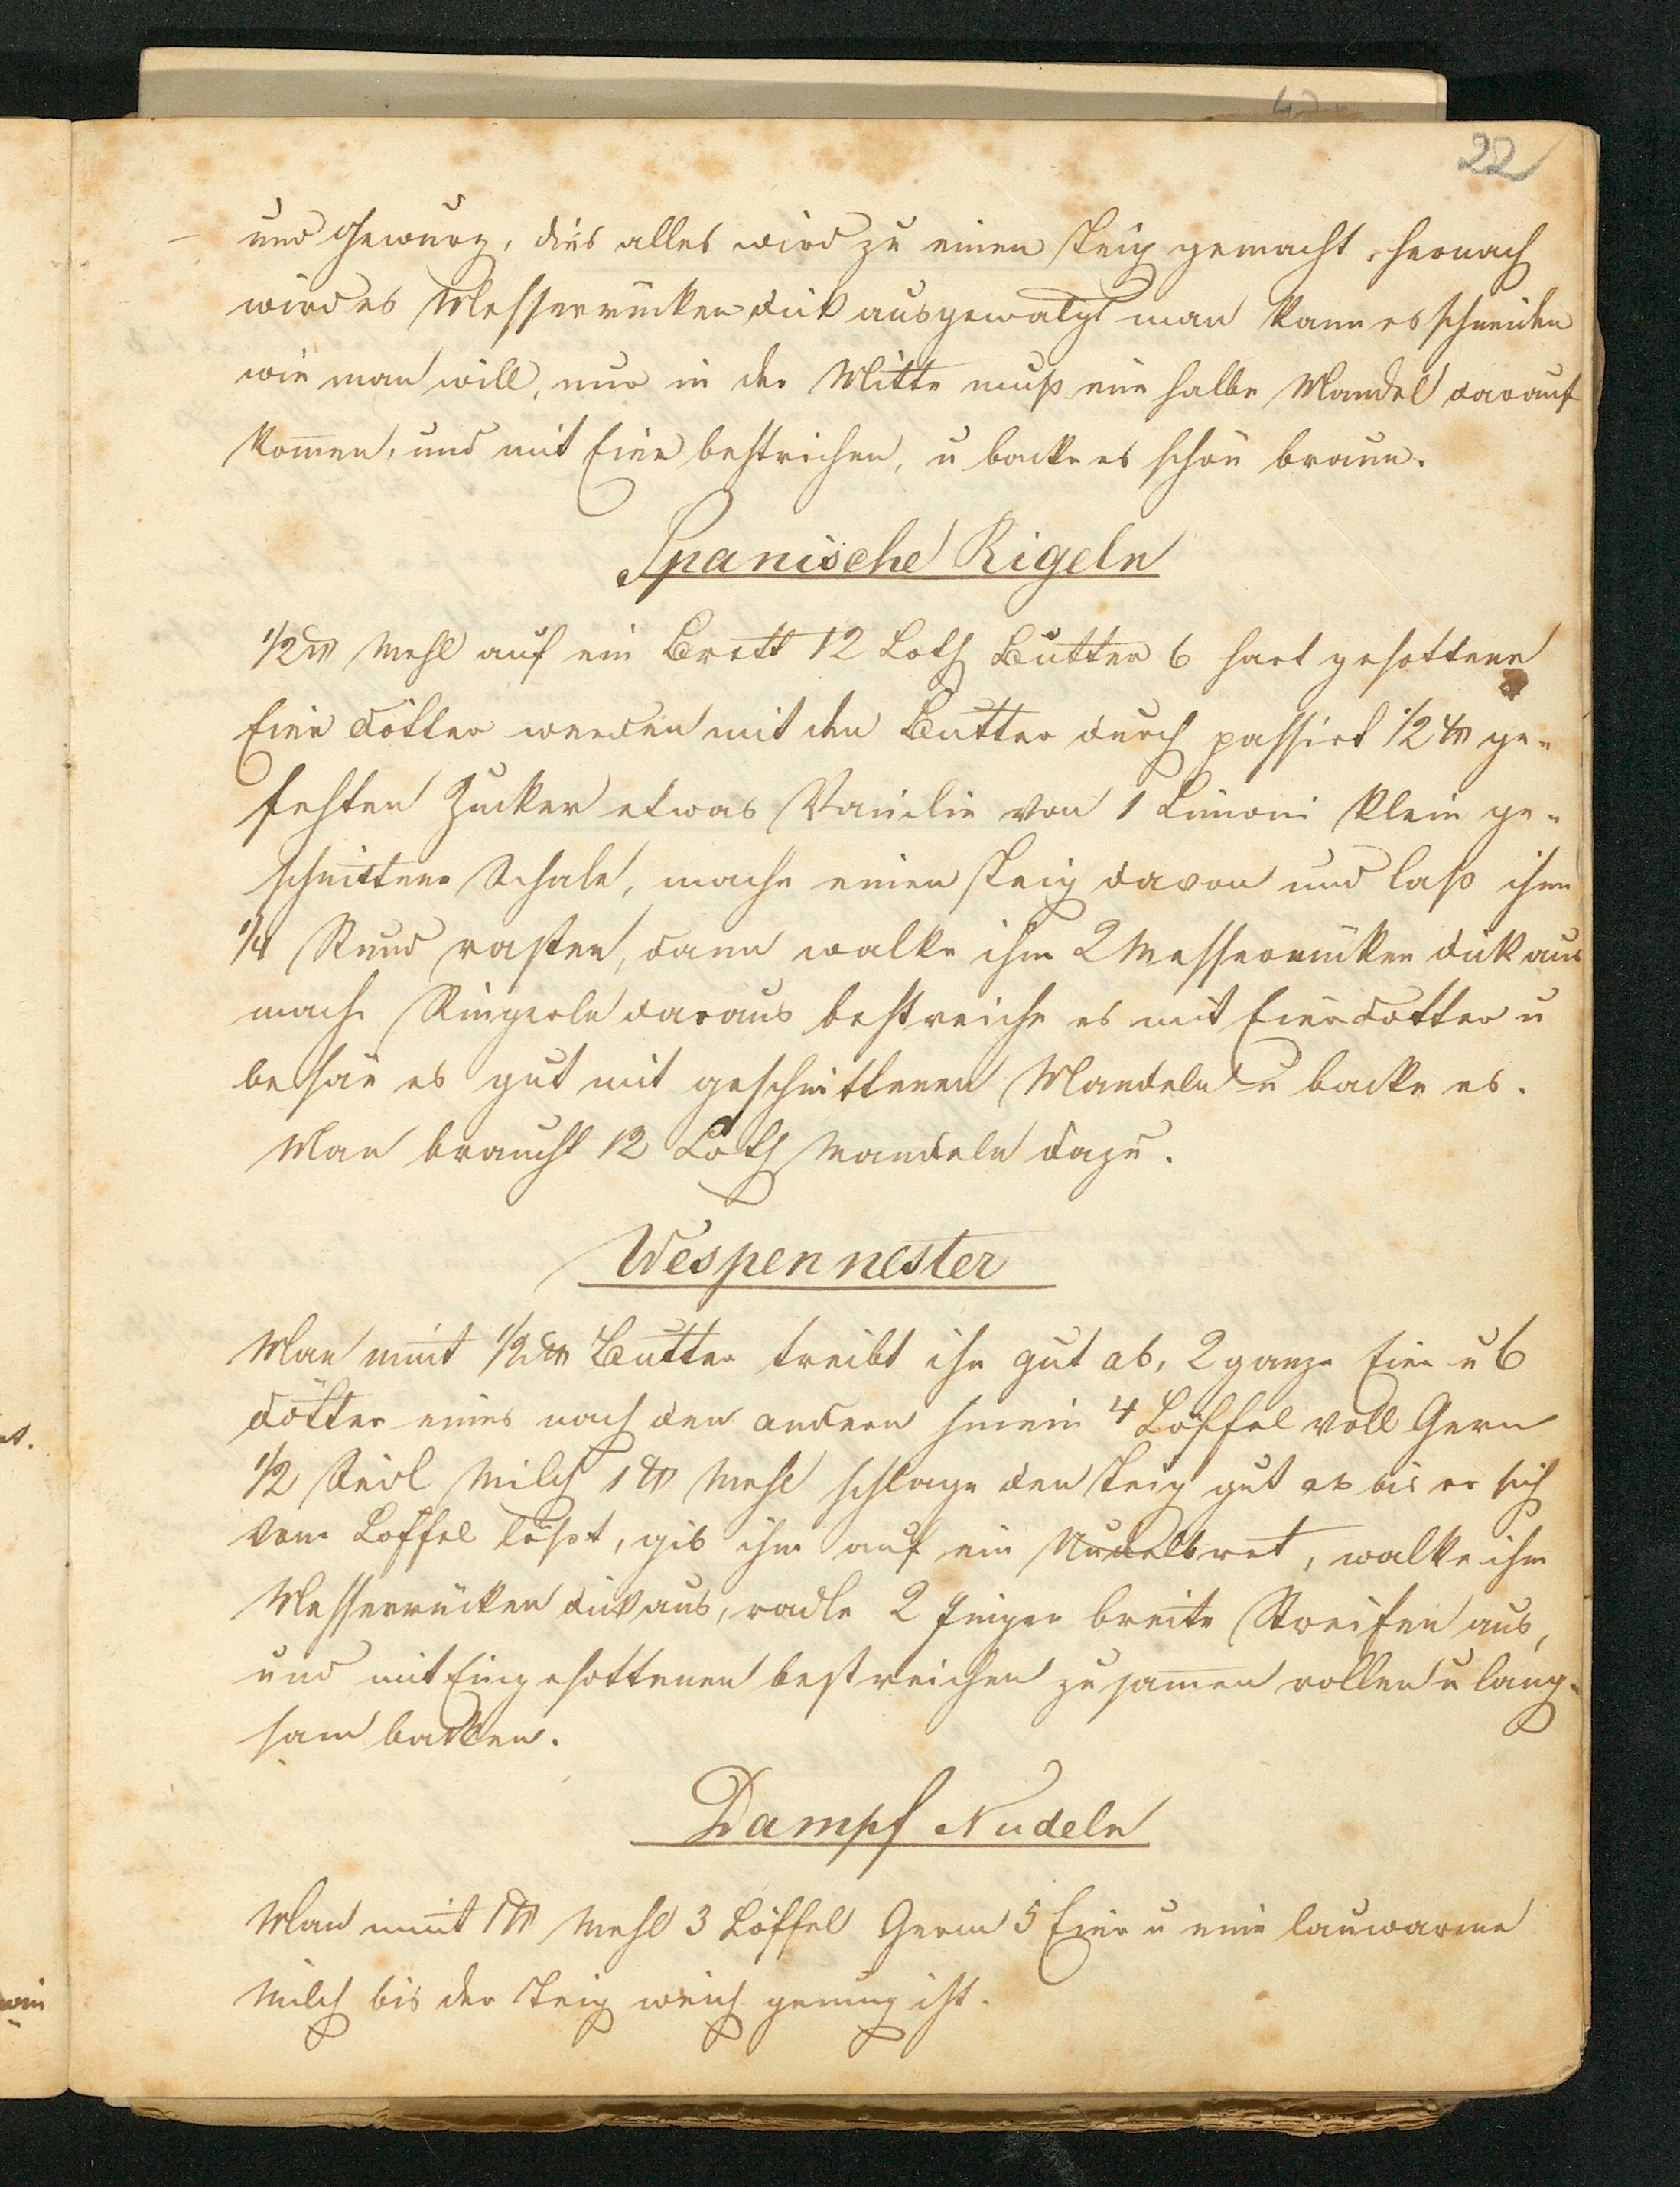 22
und Gewürz, dies alles wird zu einen Teig gemacht, hernach
wird es Messerrücken dick ausgewalgt man kann es schneiden
wie man will, nur in der Mitte muß eine halbe Mandel darauf
kom̄en, und mit Eier bestrichen, u backe es schön braun.
Spanische Rigeln
1/2 ℔ Mehl auf ein Brett 12 Loth Butter 6 hart gesottene
Eier Dötter werden mit den Butter durch passirt 1/2 ℔ ge-
fehten Zucker etwas Vanilie von 1 Limoni klein ge-
schnittene Schale, mache einen Teig davon und laß ihm
1/4 Stund rasten, dann walke ihm 2 Messerrücken dick aus
mache Ringerln daraus bestreiche es mit Eierdotter u
besäe es gut mit geschnittenen Mandeln u backe es.
Man braucht 12 Loth Mandeln dazu.
Wespennester
Man nim̄t 1/2 ℔ Butter treibt ihn gut ab, 2 ganze Eier u 6
Dötter eines nach den andern hinein 4 Löffel voll Germ
1/2 Seidl Milch 1 ℔ Mehl schlage den Teig gut ab bis er sich
vom Löffel lößt, gib ihm auf ein Nudelbret, walke ihm
Messerrücken dick aus, radle 2 Finger breite Streifen aus,
und mit Eingesottenen bestreichen zusam̄en rollen u lang-
sam backen.
Dampf Nudeln
Man nim̄t 1 ℔ Mehl 3 Löffel Germ 5 Eier u eine lauwarme
Milch bis der Teig weich genung ist.